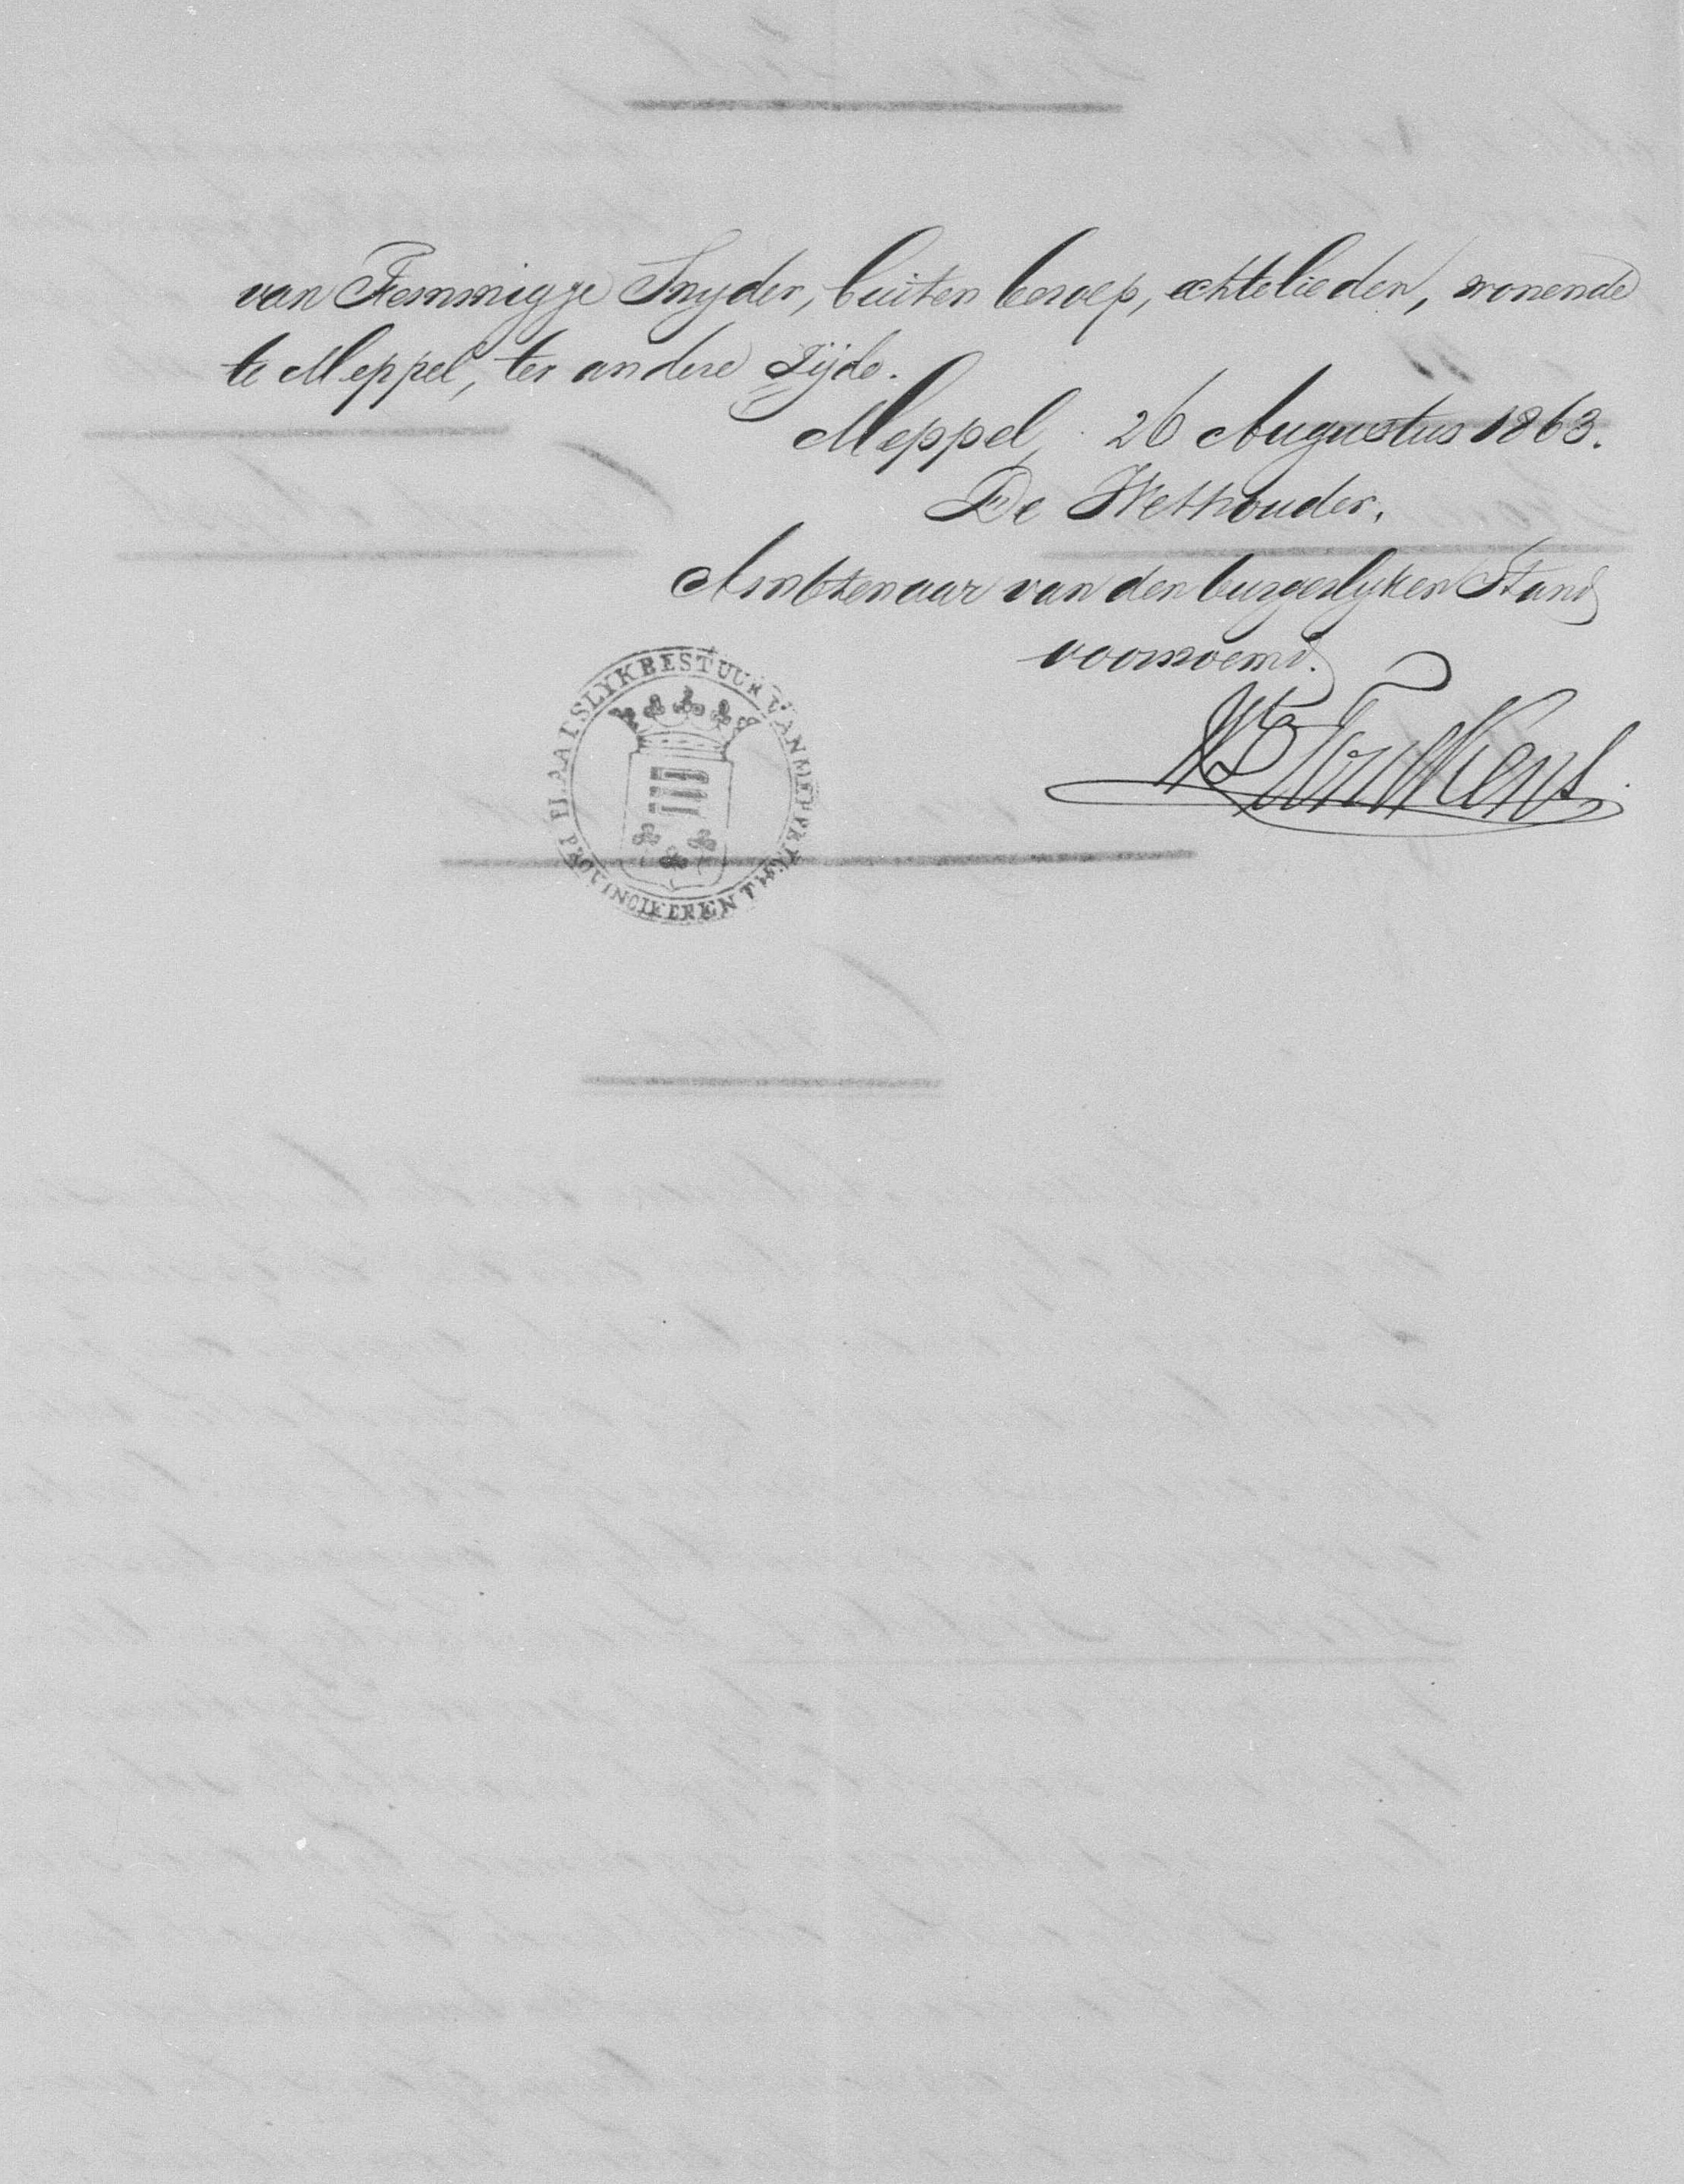 van Femmigje Snyder, buiten beroep, echtelieden, wonende
te Meppel, ter andere zijde.
Meppel, 26 Augustus 1863.
De Wethouder,
Ambtenaar van den burgerlyken Stand
voornoemd.
PLAATSLYK BESTUUR VAN MEPPEL
PROVINCIE DRENTHE